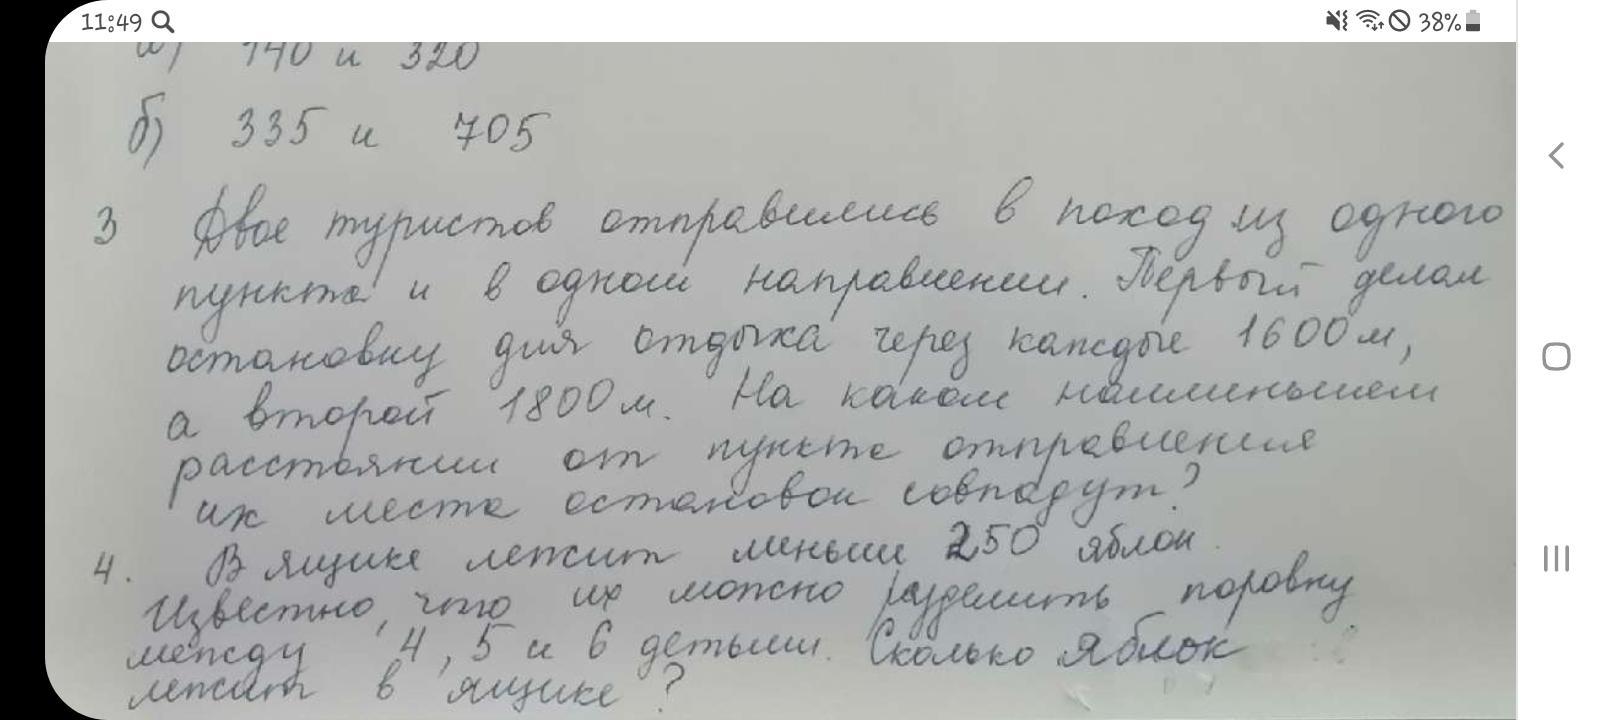 11:49
38%
а) 140 и 320
б) 335 и 705
3 Двое туристов отправились в поход из одного
пункта и в одном направлении. Первый делал
остановку для отдыха через каждые 1600 м,
а второй 1800 м. На каком наименьшем
расстоянии от пункта отправления
их места остановок совпадут?
4. В ящике лежит меньше 250 яблок.
Известно, что их можно разделить поровну
между 4, 5 и 6 детьми. Сколько яблок
лежит в ящике?